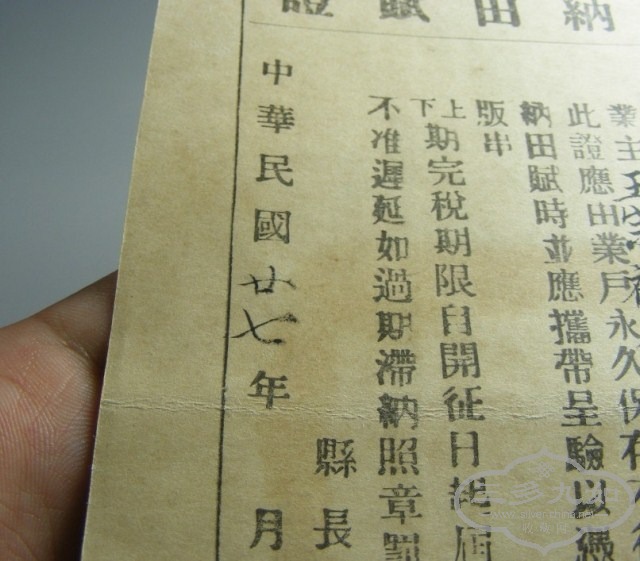 納田賦證
業主
此證應由業戶永久保存
納田賦時並應攜帶呈驗以憑
版串
上下期完稅期限自開征日起屆
不准遲延如過期滯納照章罰
縣長
中華民國廿七年 月